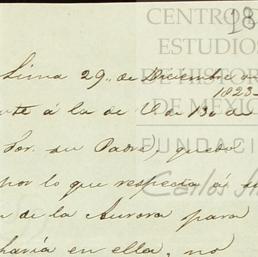 CENTRO DE
ESTUDIOS
DE HISTORIA
DE MÉXICO
FUNDACIÓN
Carlos
18
Lima 29,, de Diciembre de
1823,,
á la de V. de 130 de
Por. su Padre), quedo
por lo que respecta á su
de la Aurora para
haria en ella, no